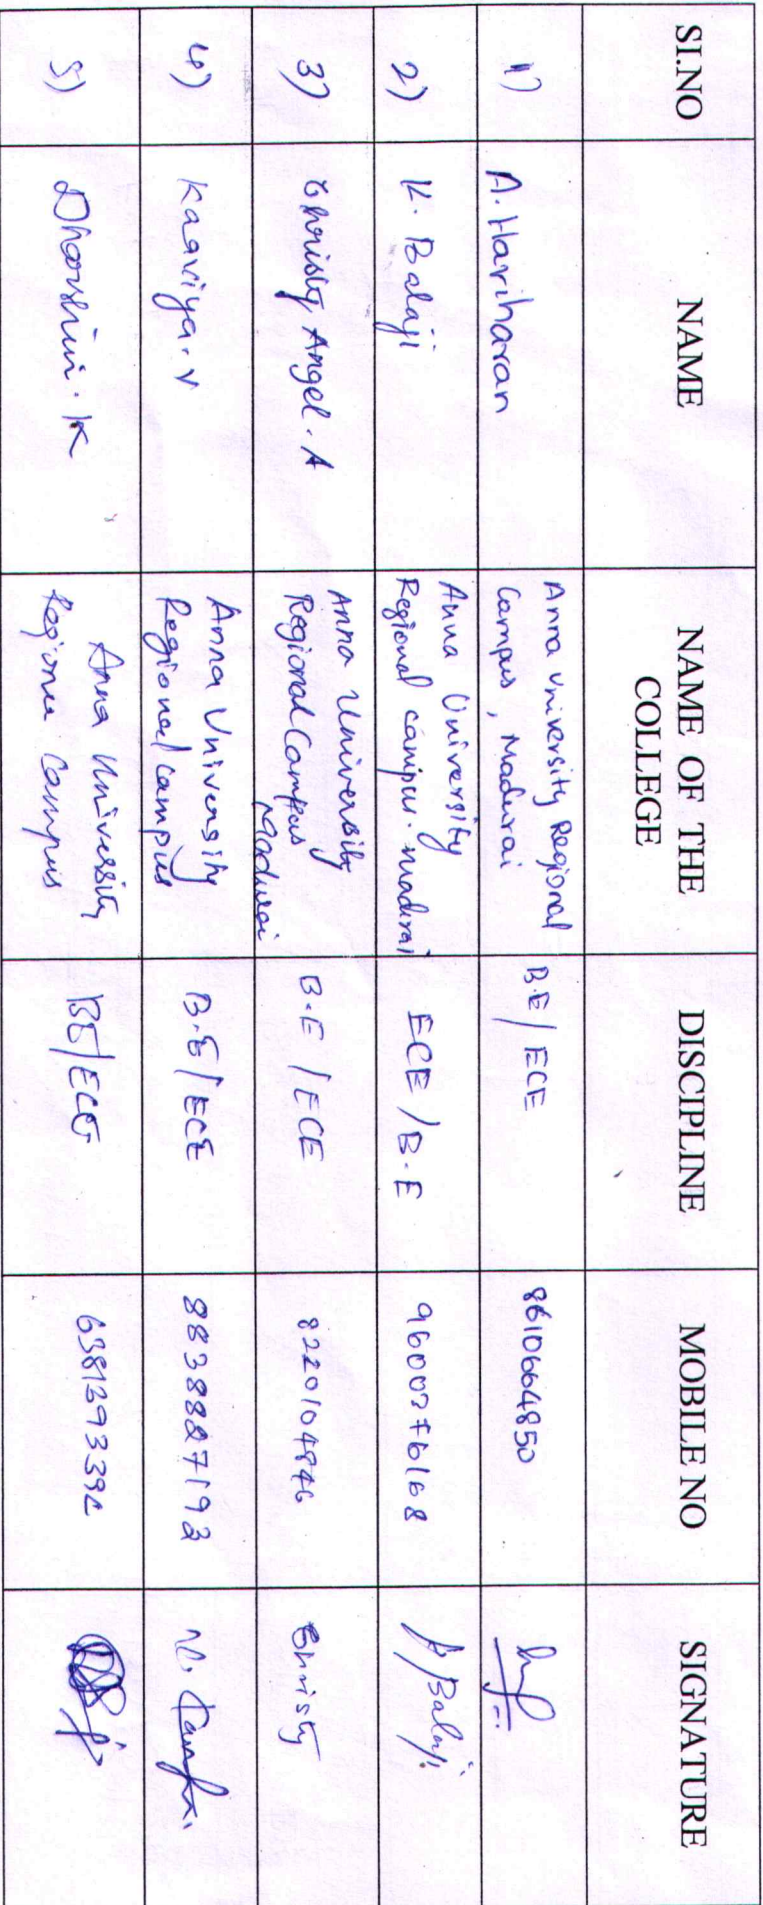 SI.NO NAME NAME OF THE COLLEGE DISCIPLINE MOBILE NO SIGNATURE
1) A. Hariharan Anna University Regional Campus, Madurai B.E / ECE 8610664850
2) K. Balaji Anna University Regional campus. madurai ECE / B.E Balaji
3) Christy Angel. A Anna University Regional Campus Madurai B.E / ECE 8220104846 Christy
4) Kaaviya. V Anna University Regional campus B.E / ECE 8838827192
5) Dharshini. K Anna University Regional Campus BE / ECE 6381393392